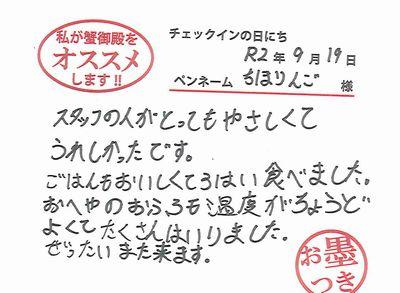 私が蟹御殿を
オススメ
します!!
チェックインの日にち
R2年9月19日
ペンネーム ちほりんご 様
スタッフの人がとってもやさしくて
うれしかったです。
ごはんもおいしくて3はい食べました。
おへやのおふろも温度がちょうど
よくてたくさんはいりました。
ぜったいまた来ます。
お墨
つき